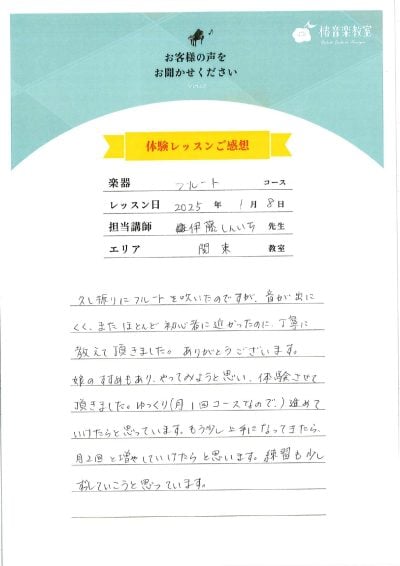 椿音楽教室
お客様の声を
お聞かせください
VOICE
体験レッスンご感想
楽器 フルート コース
レッスン日 2025 年 1 月 8 日
担当講師 伊藤しんいち 先生
エリア 関東 教室
久し振りにフルートを吹いたのですが、音が出に
くく、またほとんど初心者に近かったのに、丁寧に
教えて頂きました。ありがとうございます。
娘のすすめもあり、やってみようと思い、体験させて
頂きました。ゆっくり(月1回コースなので、)進めて
いけたらと思っています。もう少し上手になってきたら、
月2回と増やしていけたらと思います。練習も少し
ずつしていこうと思っています。